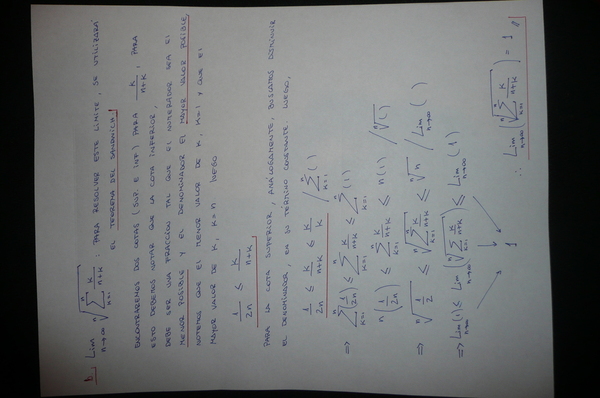 b. Lim n→∞ ⁿ√(∑ₖ₌₁ⁿ k/(n+k)) : PARA RESOLVER ESTE LIMITE, SE UTILIZARÁ
EL TEOREMA DEL SANDWICH!
ENCONTRAREMOS DOS COTAS (SUP. E INF) PARA k/(n+k), PARA
ESTO DEBEMOS NOTAR QUE LA COTA INFERIOR
DEBE SER UNA FRACCION TAL QUE EL NUMERADOR SEA EL
MENOR POSIBLE Y EL DENOMINADOR EL MAYOR VALOR POSIBLE,
NOTEMOS QUE EL MENOR VALOR DE k, k=1 Y QUE EL
MAYOR VALOR DE k, k=n LUEGO
1/2n ≤ k/(n+k)
PARA LA COTA SUPERIOR, ANÁLOGAMENTE, BUSCAMOS DISMINUIR
EL DENOMINADOR, EN SU TERMINO CONSTANTE LUEGO,
1/2n ≤ k/(n+k) ≤ k/k / ∑ₖ₌₁ⁿ ( )
⇒ ∑ₖ₌₁ⁿ (1/2n) ≤ ∑ₖ₌₁ⁿ k/(n+k) ≤ ∑ₖ₌₁ⁿ (1)
n(1/2n) ≤ ∑ₖ₌₁ⁿ k/(n+k) ≤ n(1) / ⁿ√( )
⇒ ⁿ√(1/2) ≤ ⁿ√(∑ₖ₌₁ⁿ k/(n+k)) ≤ ⁿ√n / Lim n→∞ ( )
⇒ Lim n→∞ (1) ≤ Lim n→∞ (ⁿ√(∑ₖ₌₁ⁿ k/(n+k))) ≤ Lim n→∞ (1)
1
∴ Lim n→∞ (ⁿ√(∑ₖ₌₁ⁿ k/(n+k))) = 1 //